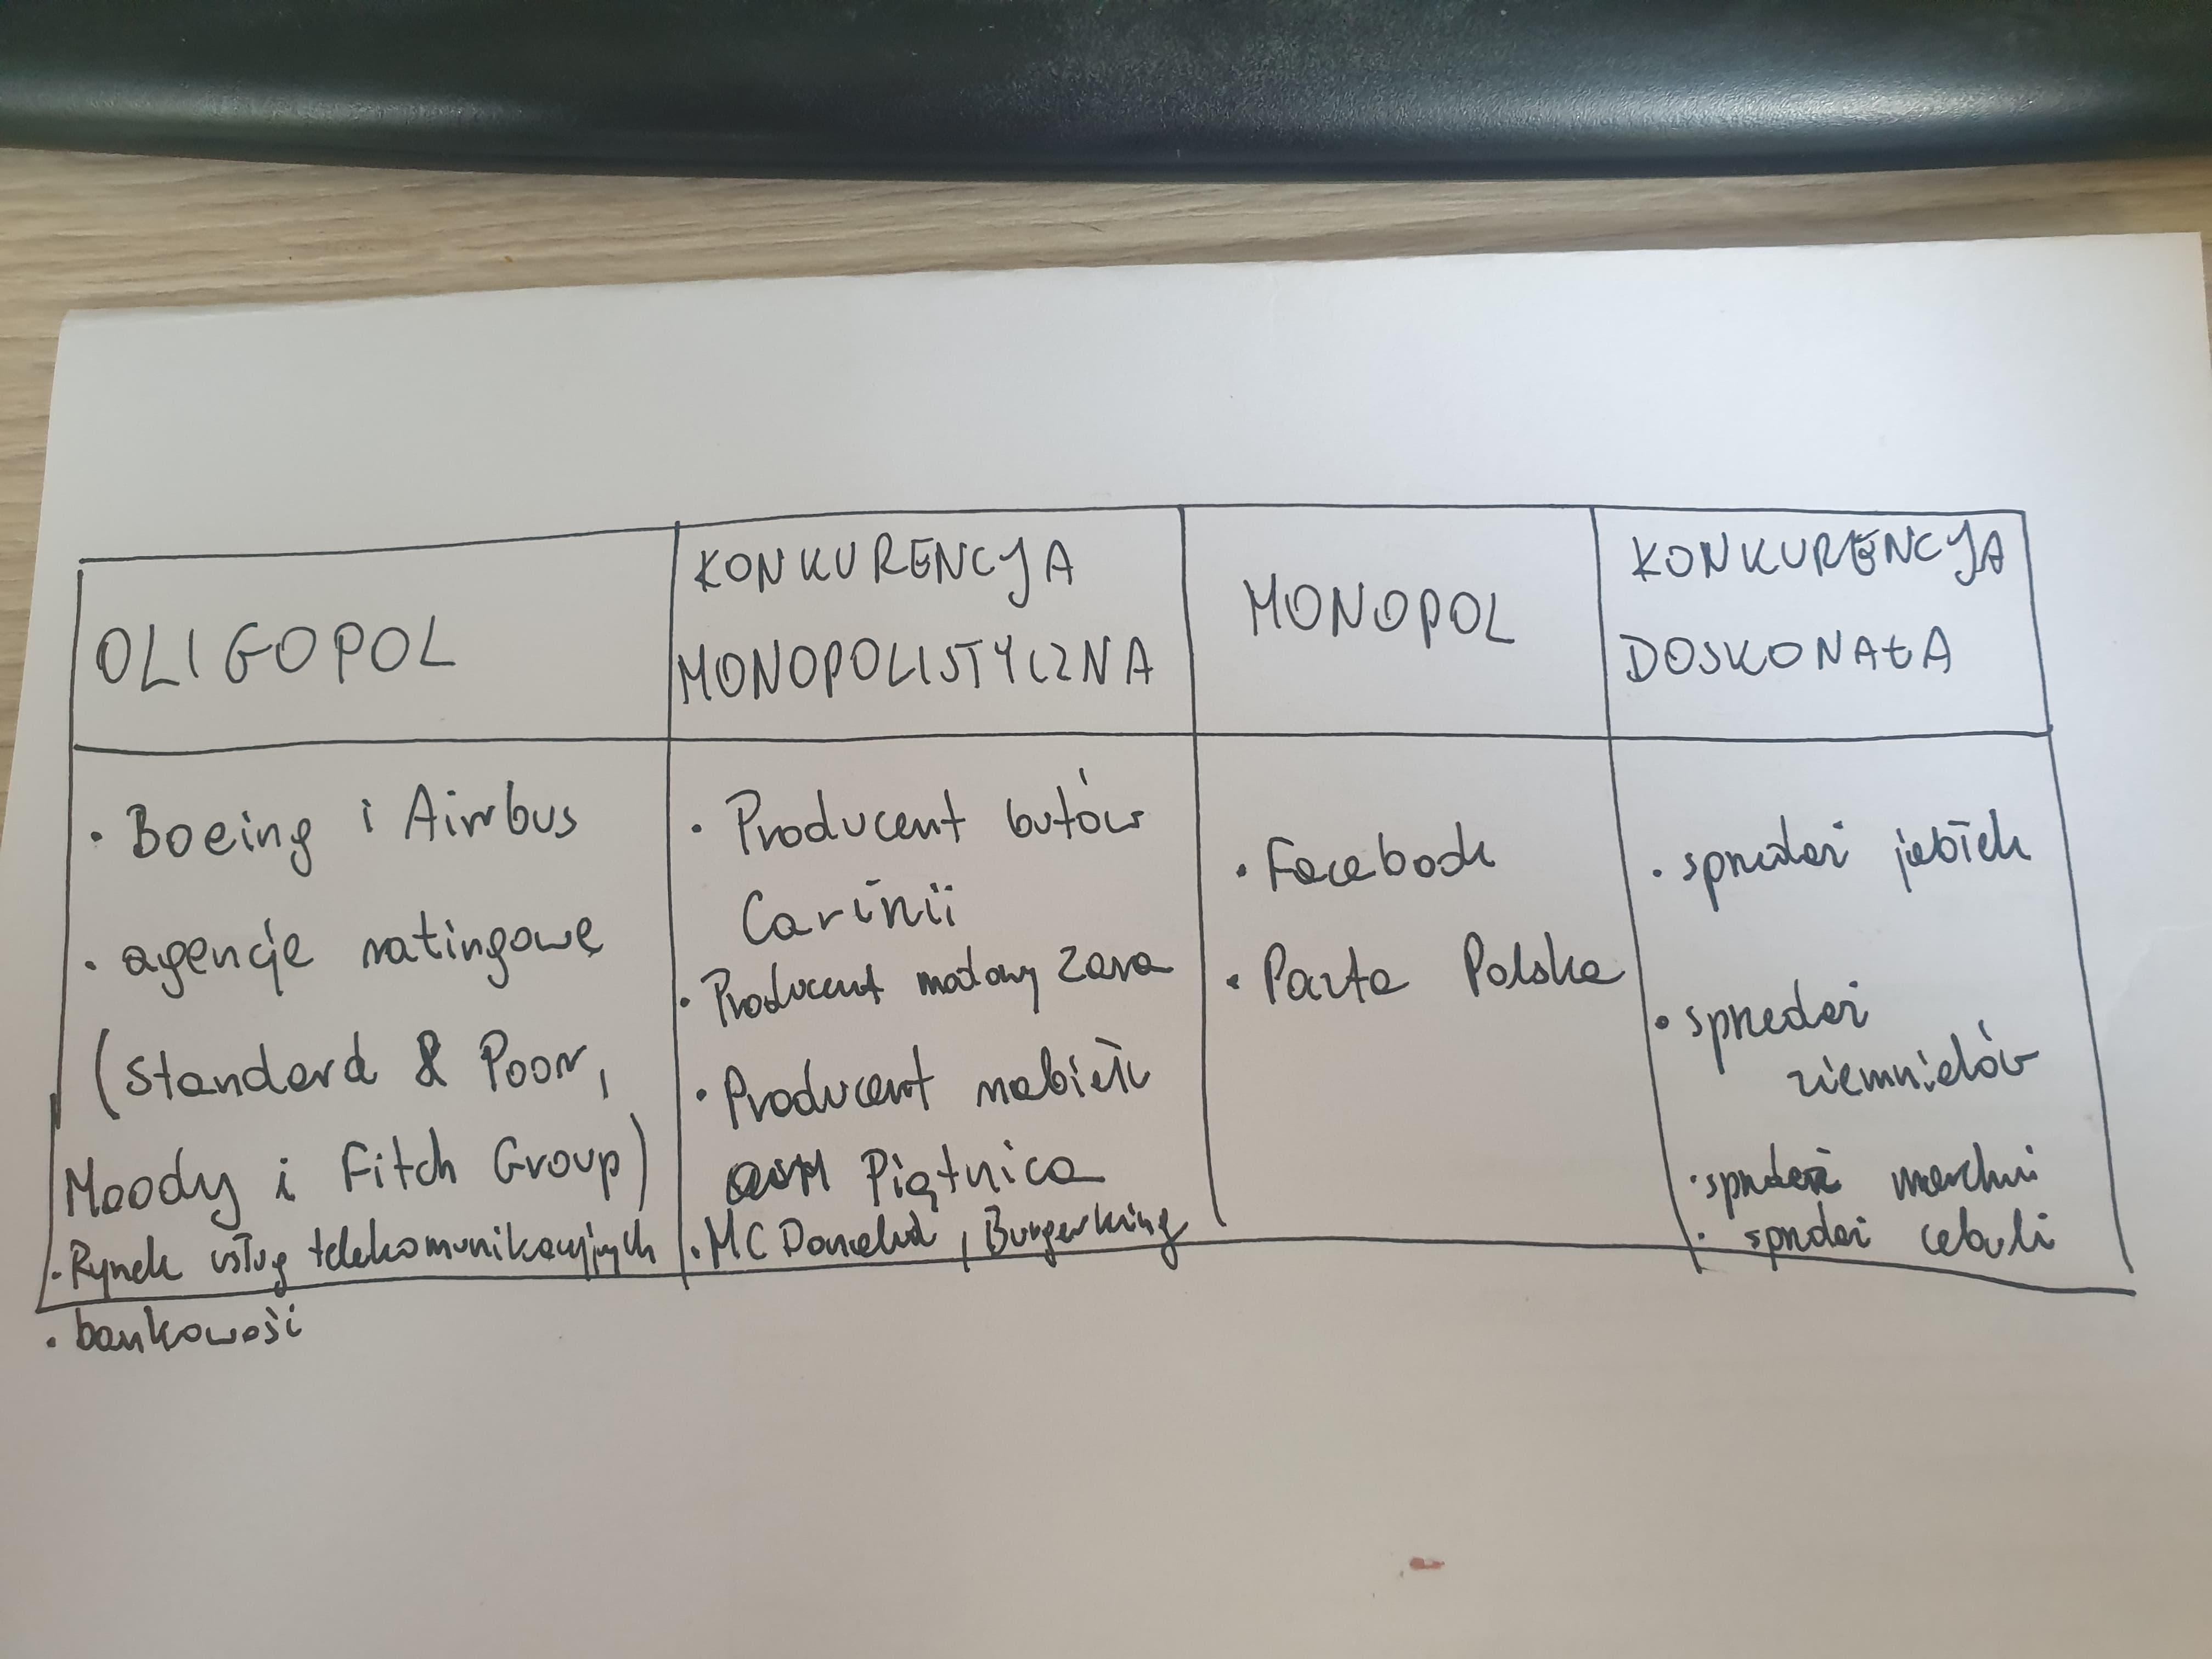 OLIGOPOL
• Boeing i Airbus
• agencje ratingowe
(Standard & Poor,
Moody i Fitch Group)
• Rynek usług telekomunikacyjnych
• bankowość
KONKURENCJA
MONOPOLISTYCZNA
• Producent butów
Carinii
• Producent modowy Zara
• Producent nabiału
OSM Piątnica
• MC Donald, Burgerking
MONOPOL
• Facebook
• Poczta Polska
KONKURENCJA
DOSKONAŁA
• sprzedaż jabłek
• sprzedaż
ziemniaków
• sprzedaż marchwi
• sprzedaż cebuli